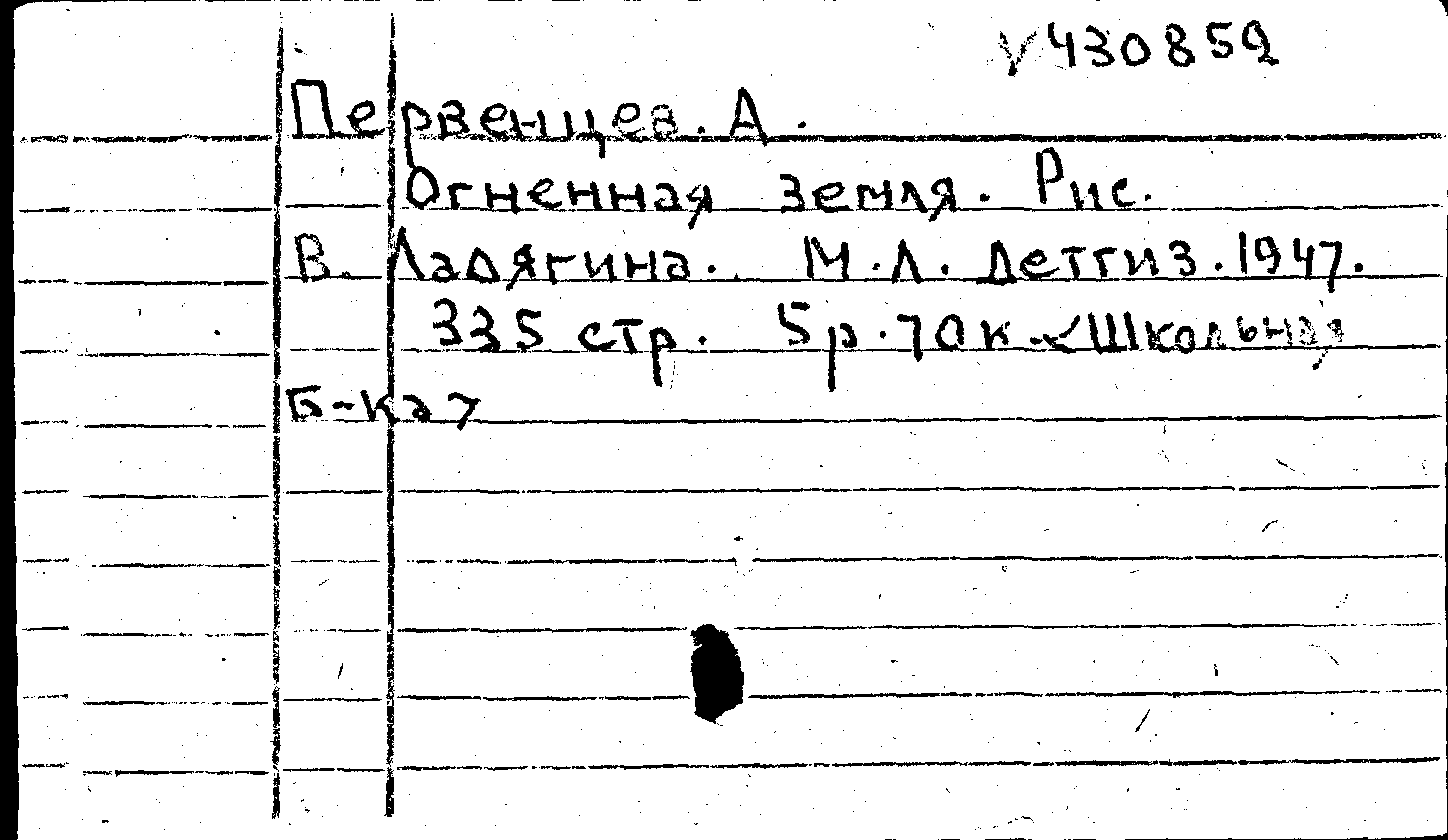 V430852
Первенцев. А.
Огненная земля. Рис.
В. Ладягина. М.Л. Детгиз.1947.
335 стр. 5р.70к. <Школьная
Б-ка>